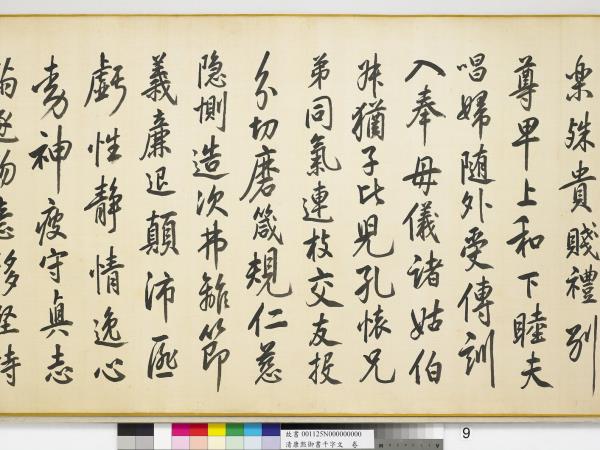 樂殊貴賤禮別
尊卑上和下睦夫
唱婦随外受傳訓
入奉母儀諸姑伯
叔猶子比兒孔懷兄
弟同氣連枝交友投
分切磨箴規仁慈
隐惻造次弗離節
義廉退顛沛匪
虧性静情逸心
動神疲守真志
滿逐物意移堅持
故書 001125N000000000
清康熙御書千字文 卷
9